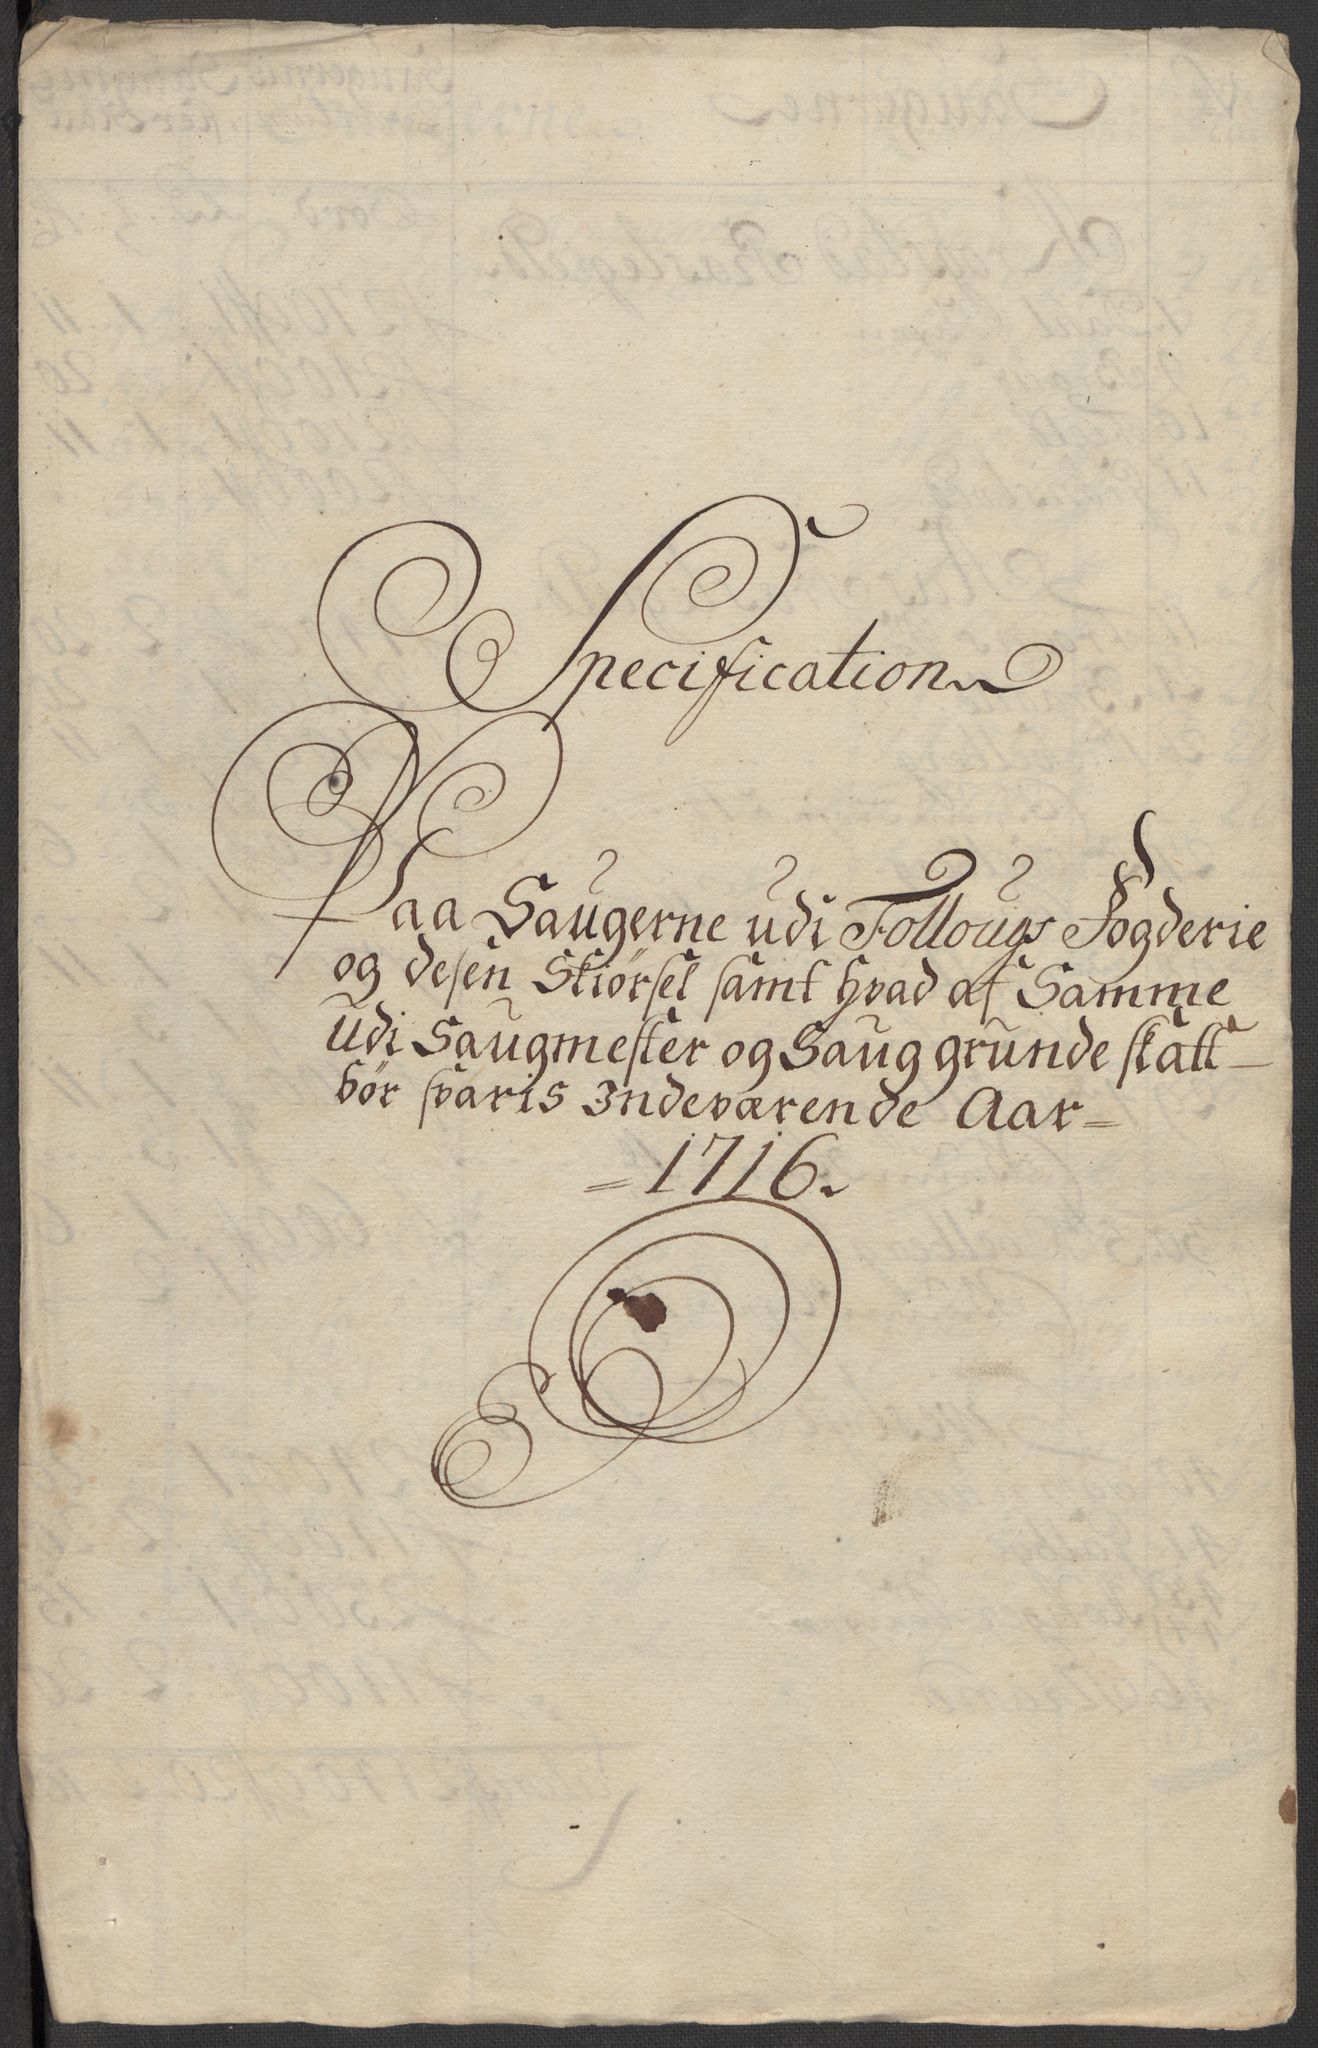 Specification
Paa Saugerne udi Follougs Fogderie
og desen Skiørsel samt hvad af Samme
Udi Saugmester og Saug grunde skatt
bør svaris Indeværende Aar
1716.